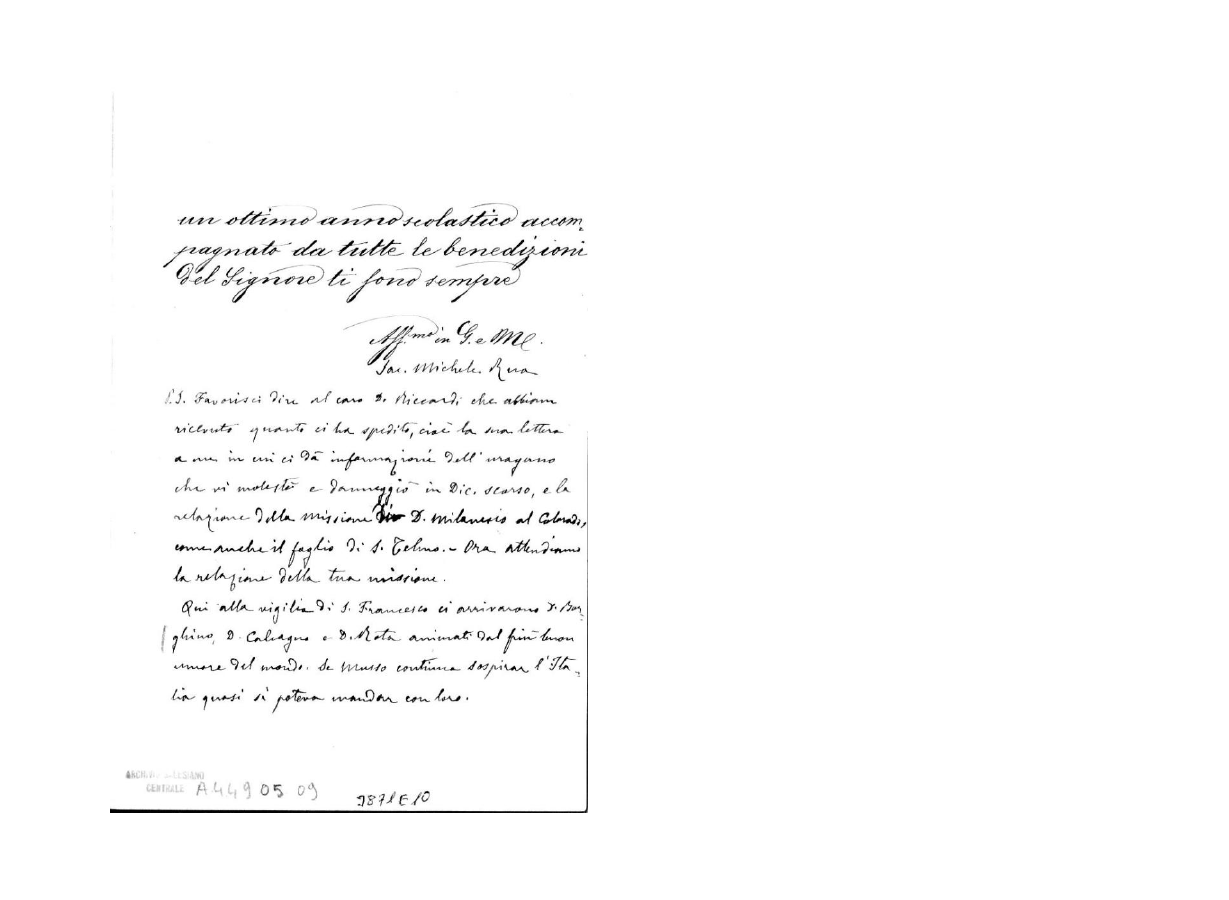 un ottimo anno scolastico accom-
pagnato da tutte le benedizioni
del Signore ti sono sempre
Aff.mo in G. e M.
Sac. Michele Rua
P.S. Favorisci dire al caro D. Riccardi che abbiam
ricevuto quanto ci ha spedito, cioè la sua lettera
a me in cui ci dà informazione dell'uragano
che vi molestò e danneggiò in Dic. scorso, e la
relazione della missione di D. Milanesio al Colorado,
come anche il foglio di S. Telmo. - Ora attendiamo
la relazione della tua missione.
Qui alla vigilia di S. Francesco ci arrivarono D. Bor-
ghino, D. Calcagno e D. Rota animati dal più buon
umore del mondo. Se Musso continua sospirar l'Ita-
lia quasi si poteva mandar con loro.
ARCHIVIO SALESIANO
CENTRALE A449 05 09